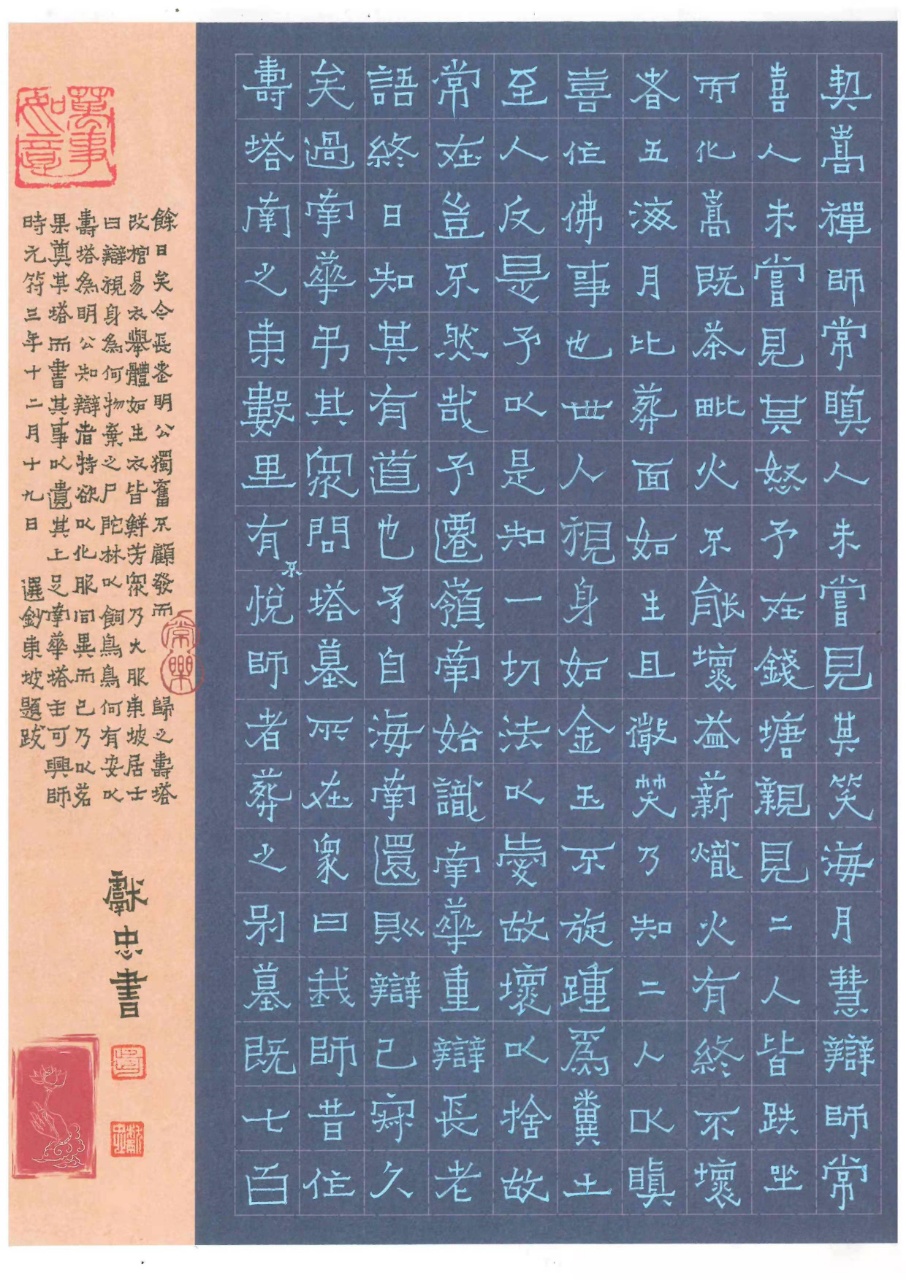 契嵩禪師常瞋人未嘗見其笑海月慧辯師常
喜人未嘗見其怒予在錢塘親見二人皆趺坐
而化嵩既茶毗火不能壞益薪熾火有終不壞
者五海月比葬面如生且微笑乃知二人以瞋
喜作佛事也世人視身如金玉不旋踵為糞土
至人反是予以是知一切法以愛故壞以捨故
常在豈不然哉予遷嶺南始識南華重辯長老
語終日知其有道也予自海南還則辯已寂久
矣過南華弔其眾問塔墓所在眾曰我師昔作
壽塔南之東數里有不悅師者葬之別墓既七百
餘日矣今長老明公獨奮不顧發而 歸之壽塔
改棺易衣舉體如生衣皆鮮芳眾乃大服東坡居士
曰辯視身為何物棄之尸陀林以飼烏鳥何有安以
壽塔為明公知辯者特欲以化服同異而已乃以茗
果奠其塔而書其事以遺其上足南華塔主可興師
時元符三年十二月十九日 選鈔東坡題跋
獻忠書
萬事如意
常樂